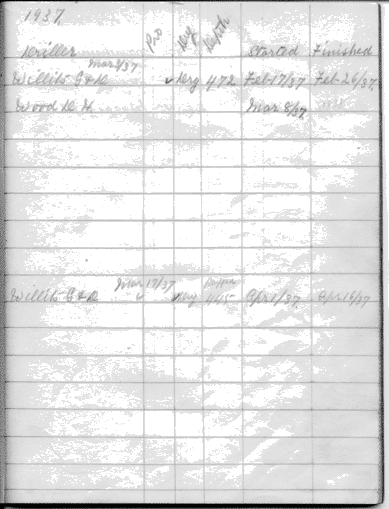 1937.
Driller Pro Dry Depth Started Finished
Mar 3/37
Willits G & R ✓ Dry 472 Feb-17/37 Feb-26/37,
Wood D. H. Mar 8/37 " " "
Mar 17/37
Willits G & R ✓ Dry 445 Apr 1/37 Apr 16/37